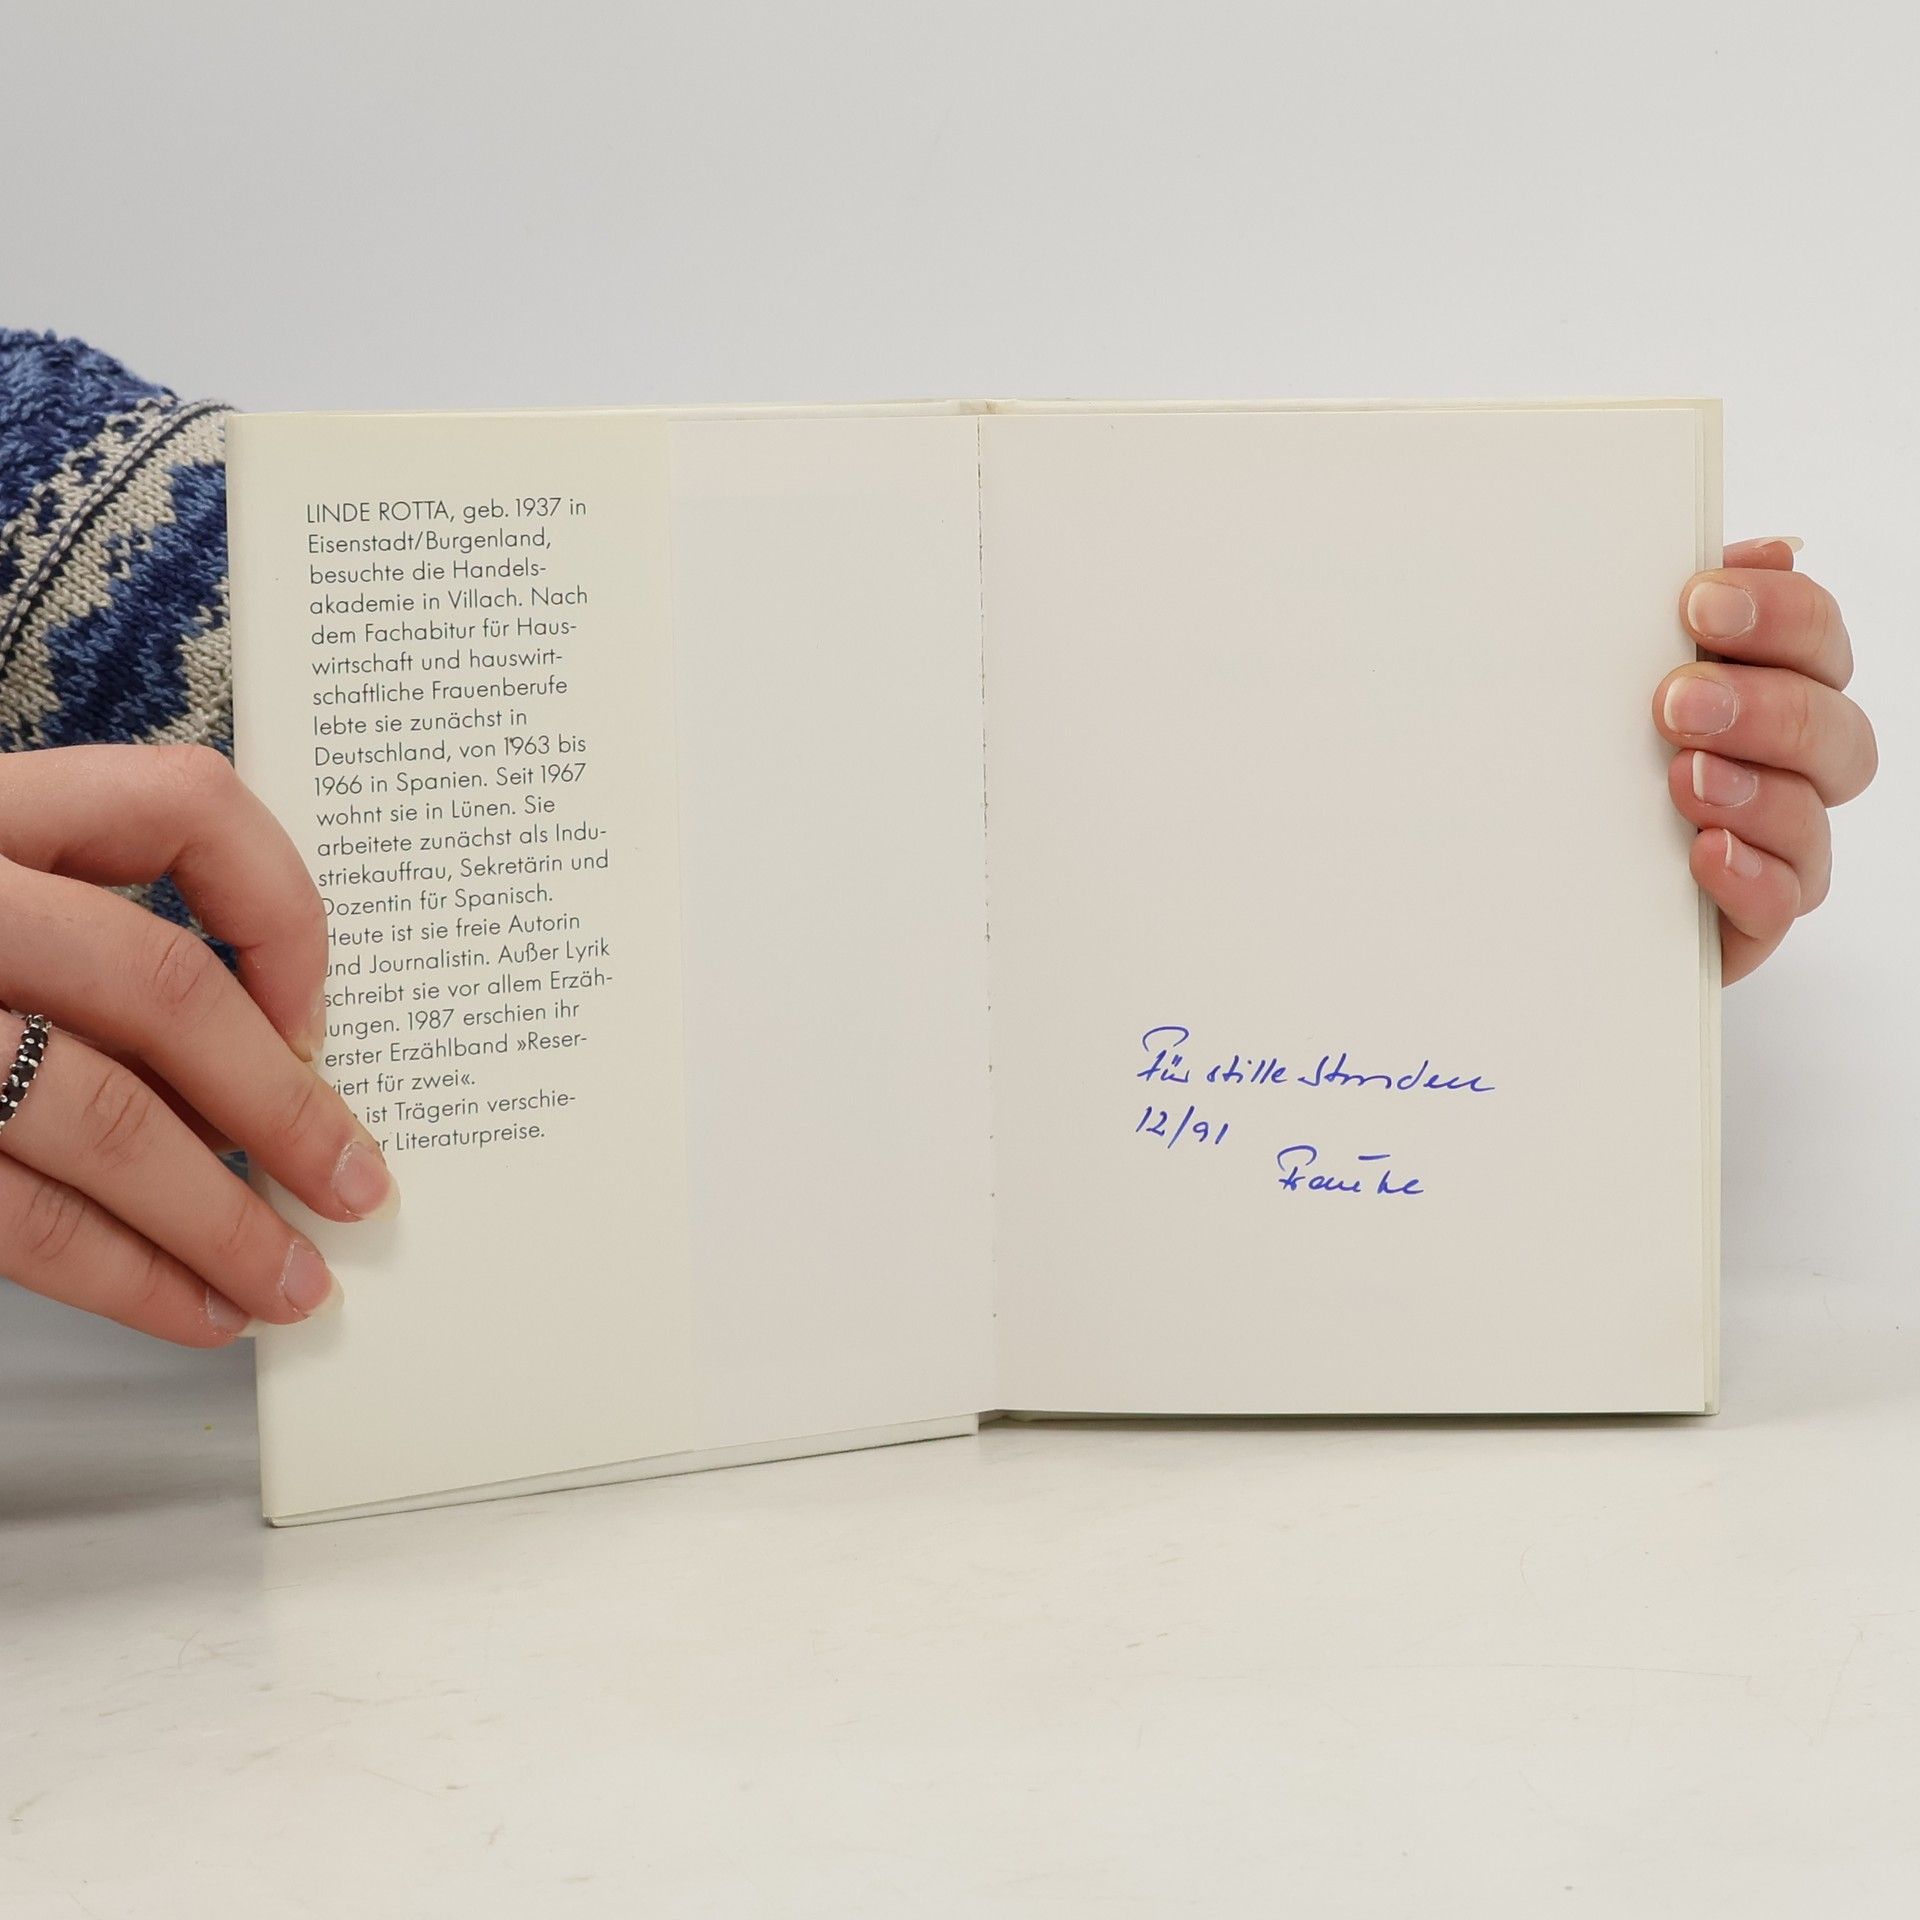 LINDE ROTTA, geb. 1937 in
Eisenstadt/Burgenland,
besuchte die Handels-
akademie in Villach. Nach
dem Fachabitur für Haus-
wirtschaft und hauswirt-
schaftliche Frauenberufe
lebte sie zunächst in
Deutschland, von 1963 bis
1966 in Spanien. Seit 1967
wohnt sie in Lünen. Sie
arbeitete zunächst als Indu-
striekauffrau, Sekretärin und
Dozentin für Spanisch.
Heute ist sie freie Autorin
und Journalistin. Außer Lyrik
schreibt sie vor allem Erzäh-
lungen. 1987 erschien ihr
erster Erzählband »Reser-
viert für zwei«.
ist Trägerin verschie-
Literaturpreise.
Für stille Stunden
12/91
Frauke